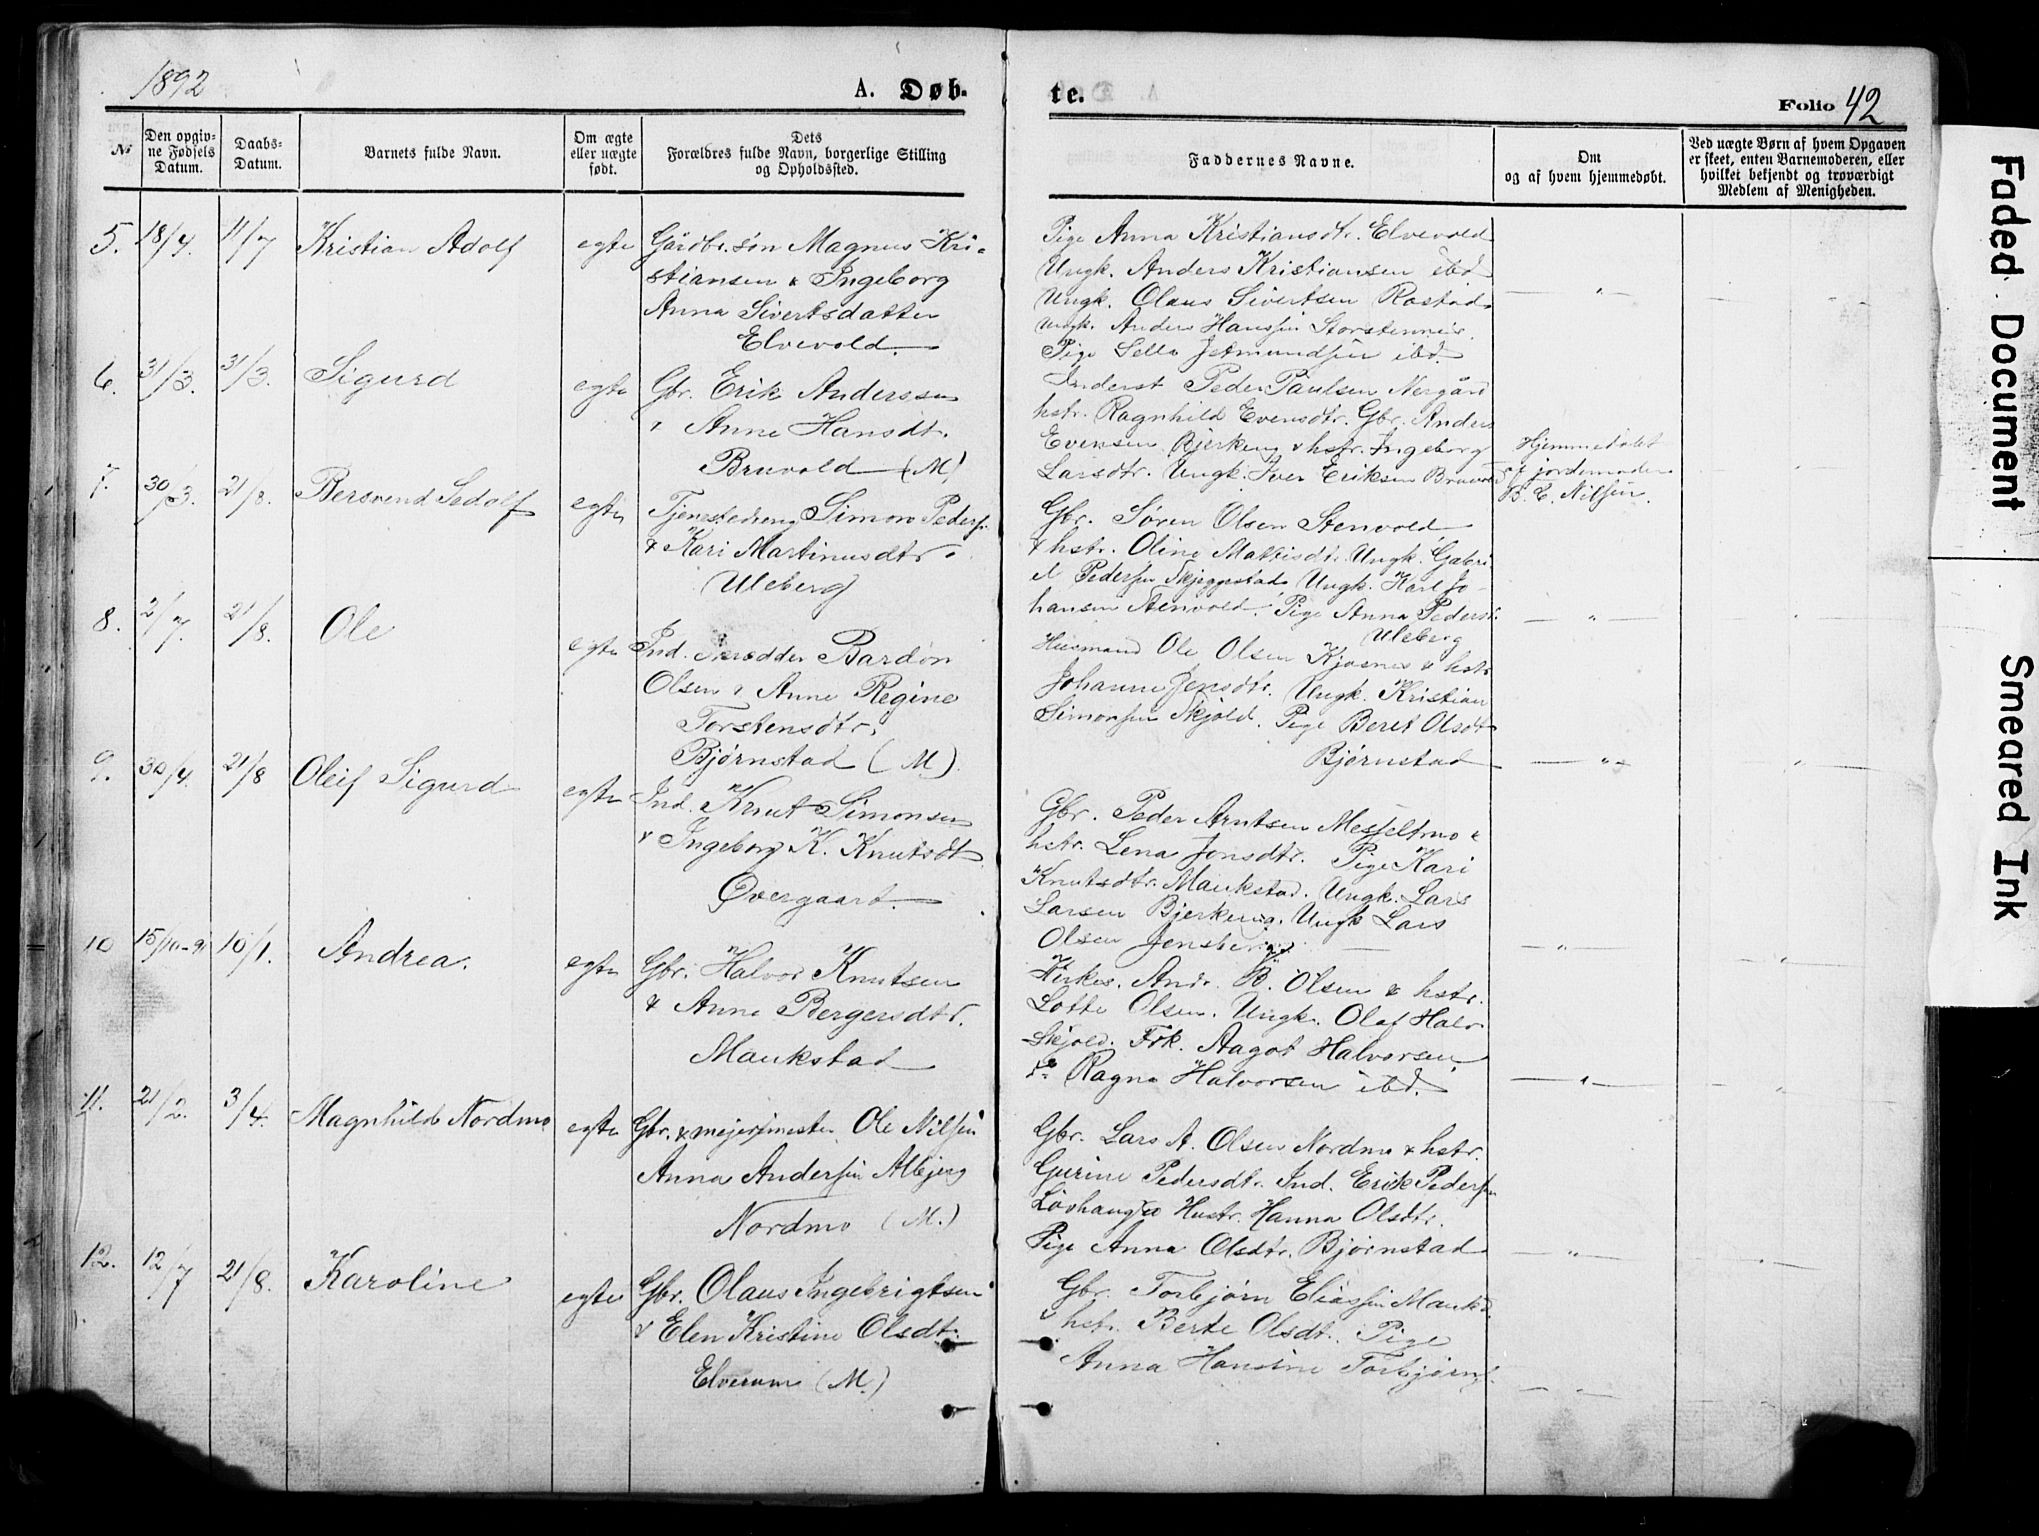 1892
A. Døb-
te.
Folio 42
No
Den opgiv-
ne Fødsels
Datum.
Daabs-
Datum.
Barnets fulde Navn.
Om ægte
eller uægte
født.
Dets
Forældres fulde Navn, borgerlige Stilling
og Opholdssted.
Faddernes Navne.
Om
og af hvem hjemmedøbt.
Ved uægte Børn af hvem Opgaven
er skeet, enten Barnemoderen, eller
hvilket bekjendt og troværdigt
Medlem af Menigheden.
5. 18/4. 11/7 Kristian Adolf egte
Gårdbr. søn Magnus Kri-
stiansen & Ingeborg
Anna Sivertsdatter
Elvevold.
Pige Anna Kristiansdtr. Elvevold
Ungk. Anders Kristiansen ibd
Ungk. Olaus Sivertsen Rostad
Ungk. Anders Hansen
Pige ibd.
6. 31/3. 31/3. Sigurd egte
Gbr. Erik Anderssen
Anne Hansdt.
Bruvold (M)
Inderst Peder Paulsen Nergård
hstr. Ragnhild Evensdtr. Gbr. Anders
Evensen Bjerkeng & hstr. Ingeborg
Larsdtr. Ungk. Iver Eriksen Bruvold
Hjemmedøbt
af jordemoder
B. E. Nilsen.
7. 30/3. 21/8. Bersvend Sedolf egte
Tjenestedreng Simon Peders.
& Kari Martinusdtr.
Uleberg
Gbr. Søren Olsen Stenvold
& hstr. Oline Ungk. Gabri
el Pedersen Skjeggestad, Ungk. Karl Jo-
hansen Stenvold. Pige Anna Pedersd.
Uleberg
8. 2/7. 21/8. Ole egte
Ind. Skrædder Bardon
Olsen & Anne Regine
Torstensdtr.
Bjørnstad (M).
Husmand Ole Olsen Kjosnes & hstr
Johanne Jensdtr. Ungk. Kristian
Simonsen Skjold. Pige Beret Olsdt
Bjørnstad
9. 30/4. 21/8 Oleif Sigurd egte
Ind. Knut Simonsen
& Ingeborg K. Knutsdt.
Øvergaard.
Gbr. Peder Arntsen Messeltmo &
hstr. Lena Jonsdtr. Pige Kari
Knutsdtr. Maukstad. Ungk. Lars
Larsen Bjerkeng. Ungk Lars
Olsen Jensberg.
10 15/10-91 10/1. Andrea. egte
Gbr. Halvor Knutsen
& Anne Bergersdtr.
Maukstad
Kirkes. Andr. B. Olsen & hstr.
Lotte Olsen. Ungk. Olaf Halv.
Skjold. Frk. Aagot Halvorsen
Ragna Halvorsen ibd.
11. 21/2. 3/4. Magnhild Nordmo egte
Gbr. & mejerimester Ole Nilsen
Anna Andersen
Nordmo (M.)
Gbr. Lars A. Olsen Nordmo & hstr.
Gurine Pedersdt. Ind. Erik Pedersen
Løvhaug & Hustr. Hanna Olsdtr.
Pige Anna Olsdtr. Bjørnstad
12. 12/7 21/8. Karoline egte
Gbr. Olaus Ingebrigtsen
& Elen Kristine Olsdt.
Elverum (M.)
Gbr. Torbjørn Eliassen Maukst.
& hstr. Berte Olsdt. Pige
Anna Hansine Torbjørns.
Faded Document
Smeared Ink